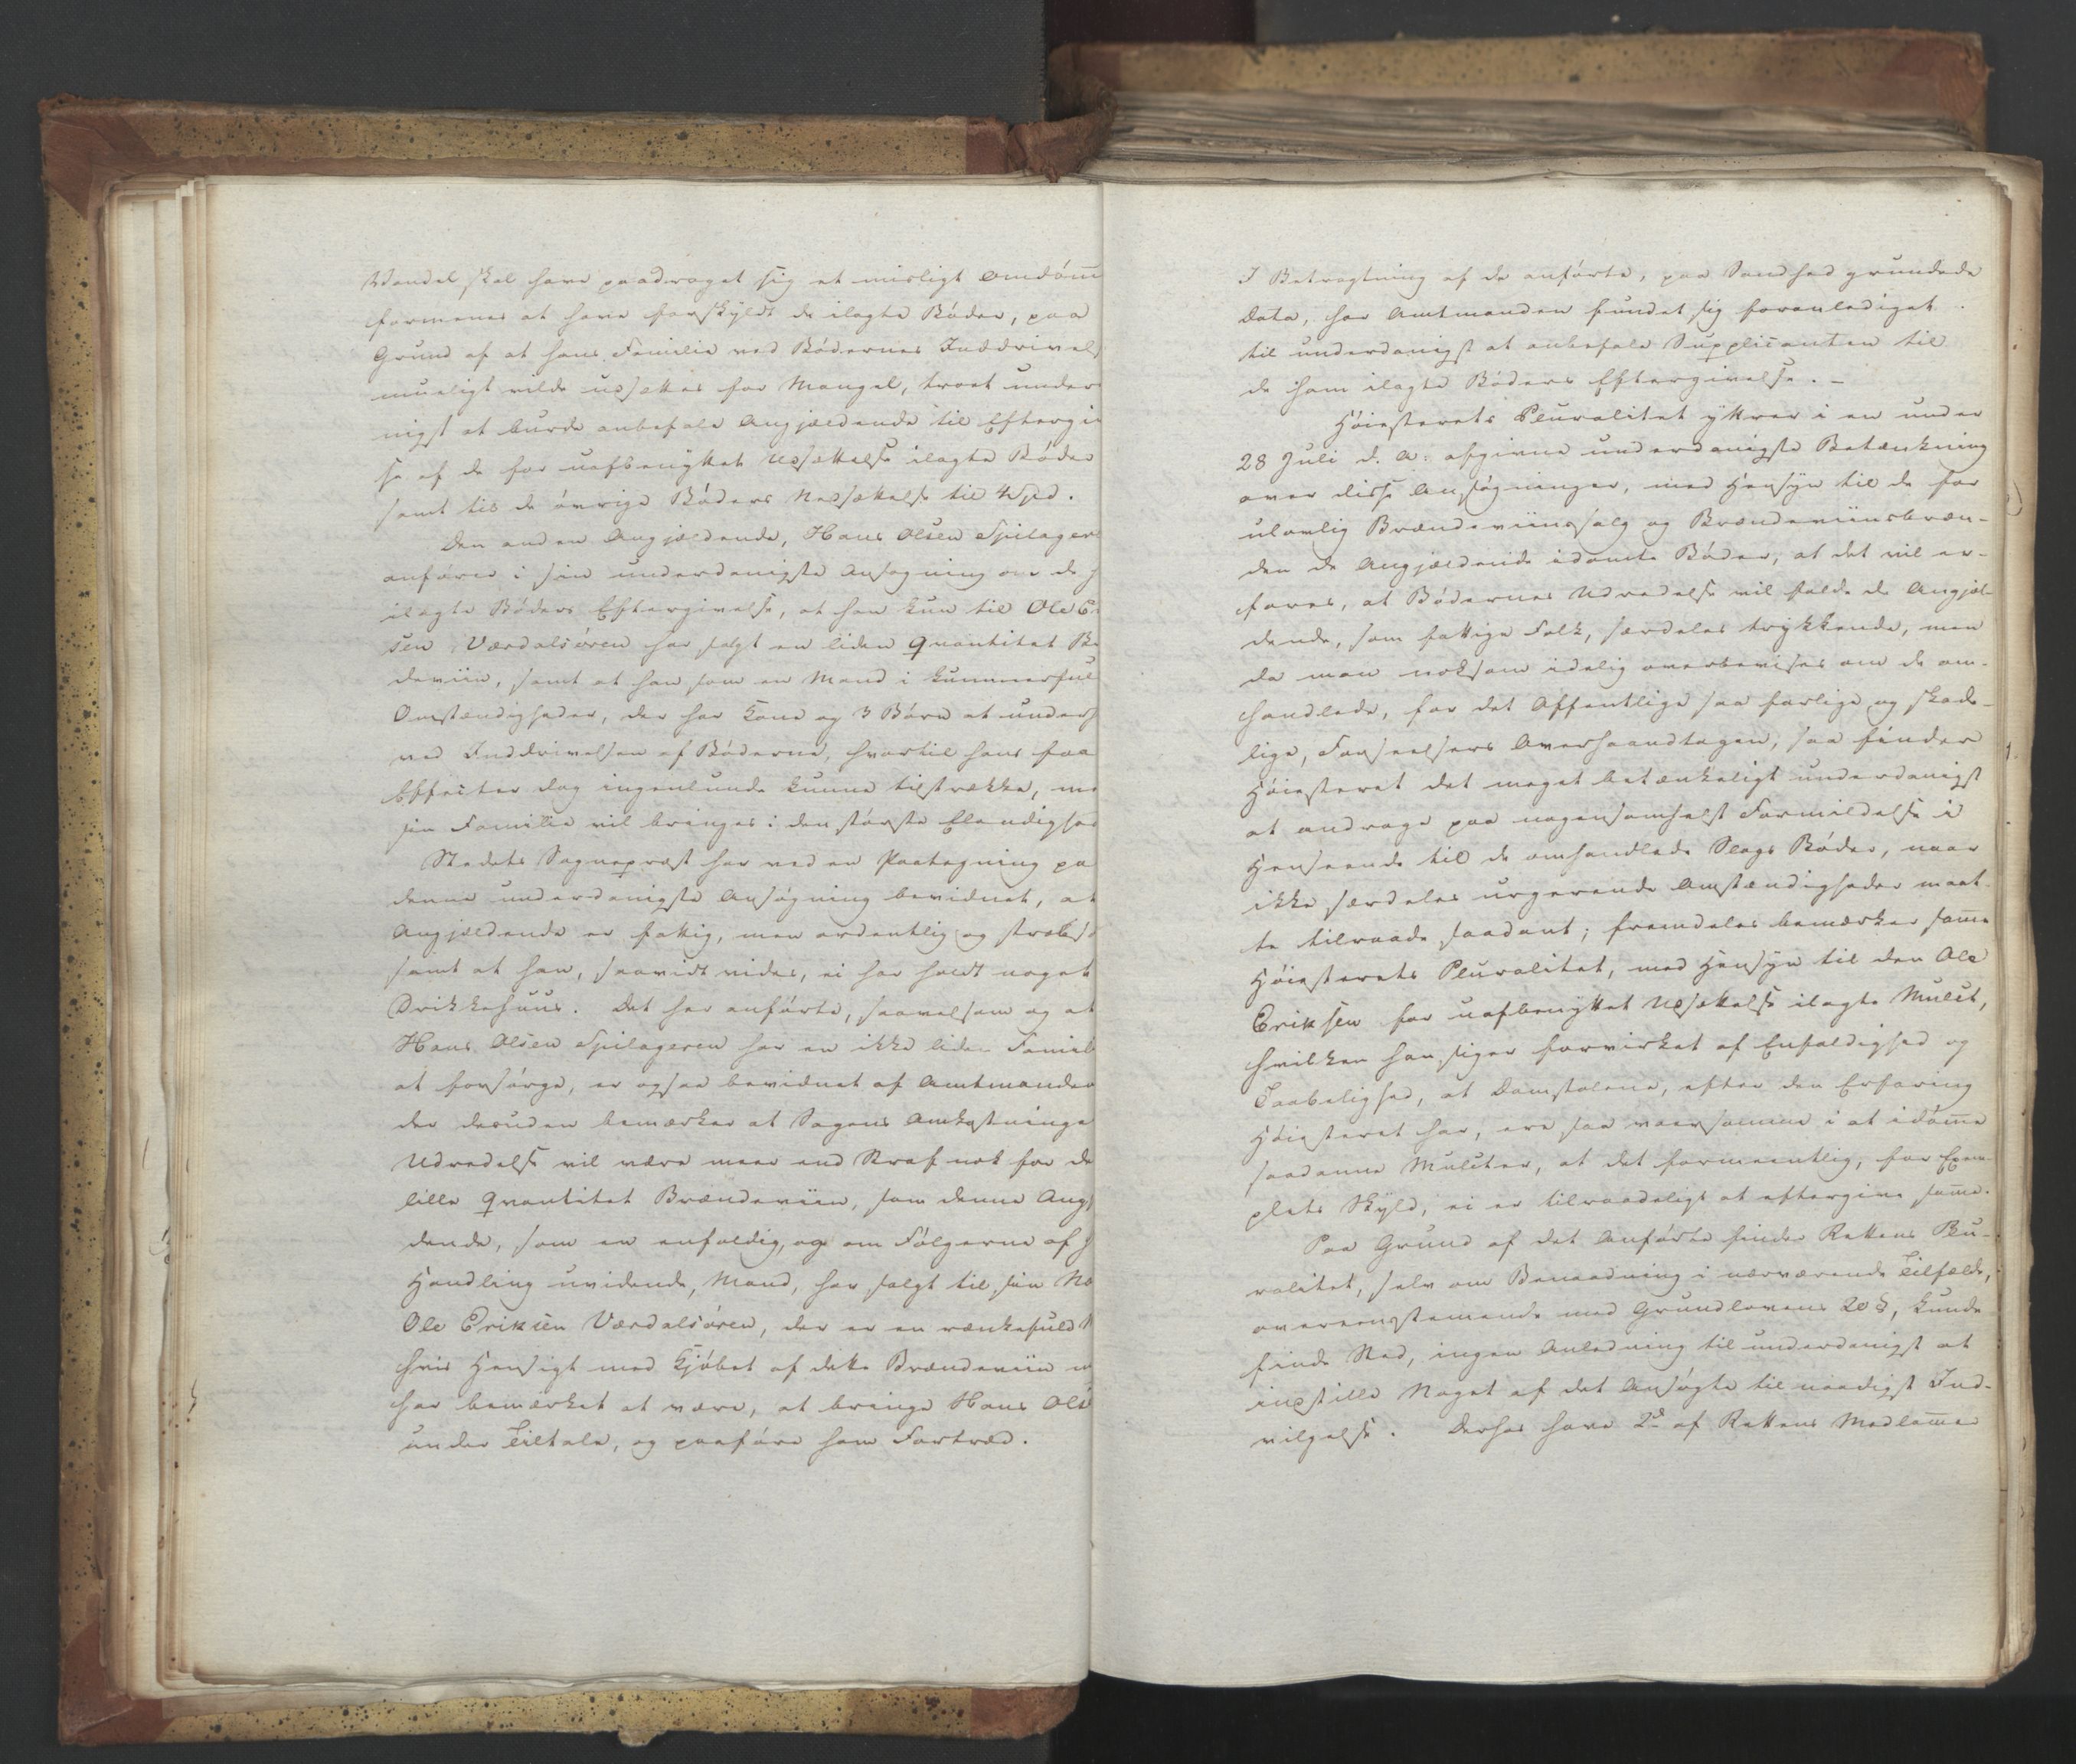 Vandel skal have paadraget sig et misligt Omdöm̄
formenes at have forskyldt de ilagte Böder, paa
Grund af at hans Familie ved Bödernes Inddrivels
mueligt vilde udsættes for Mangel, troet under
nigst at burde anbefale Angjeldende til Eftergi
se af de for uafbenyttet Udsættelse ilagte Böder
samt til de övrige Böders Nedsættelse til 4 Spd.
Den anden Angjeldende, Hans Olsen Spilageren
anförer i sin underdanigste Ansøgning om de h
ilagte Böders Eftergivelse, at han kun til Ole E
sen Værdalsören har solgt en liden Qvantitet Br
deviin, samt at han som en Mand i kummerful
Omstændigheder, der har Kone og 3 Börn at underh
ved Inddrivelsen af Böderne, hvortil hans faa
Effecter dog ingenlunde kunne tilstrække, me
sin Familie vil bringes i den störste Elendighed
Stedets Sognepræst har ved en Paategning pa
denne underdanigste Ansøgning bevidnet, at
Angjeldende er fattig, men ordentlig og stræbso
samt at han, saavidt vides, ei har holdt noget
Drikkehuus. Det her anförte, saavelsom og at
Hans Olsen Spilageren har en ikke liden Famili
at forsörge, er ogsaa bevidnet af Amtmanden
der desuden bemærker at Sagens Omkostninge
Udredelse vil være meer end Straf nok for de
lille Qvantitet Brændeviin, som denne Angj
dende, som en enfoldig, og om Fölgerne af s
Handling uvidende, Mand, har solgt til sin Na
Ole Eriksen Værdalsören, der er en rænkefuld M
hvis Hensigt med Kjöbet af dette Brændeviin m
har bemærket at være, at bringe Hans Ols
under Tiltale, og paaföre ham Fortræd.
I Betragtning af de anförte, paa Sandhed grundede
Data, har Amtmanden fundet sig foranlediget
til underdanigst at anbefale Supplicanten til
de ham ilagte Böders Eftergivelse. -
Höiesterets Pluralitet yttrer i en under
28 Juli d. A. afgiven underdanigste Betænkning
over disse Ansøgninger, med Hensyn til de for
ulovlig Brændeviinssalg og Brændeviinsbræn-
den de Angjeldende idömte Böder, at det vel er-
fares, at Bödernes Udredelse vil falde de Angjel-
dende, som fattige Folk, særdeles trykkende, men
da man noksom idelig overbevises om de om-
handlede, for det Offentlige saa farlige og skade-
lige, Forseelsers Overhaandtagen, saa finder
Höiesteret det meget betænkeligt underdanigst
at andrage paa nogensomhelst Formildelse i
Henseende til de omhandlede Slags Böder, naar
ikke særdeles urgerende Omstændigheder maat-
te tilraade saadant; fremdeles bemærker sam̄e
Höiesterets Pluralitet, med Hensyn til den Ole
Eriksen for uafbenyttet Udsættelse ilagte Mulct,
hvilken han siger forvirket af Enfoldighed og
Taabelighed, at Domstolene, efter den Erfaring
Höiesteret har, ere saa varsomme i at idöm̄e
saadanne Mulcter, at det formeentlig, for Exem-
plets Skyld, ei er tilraadeligt at eftergive sam̄e.
Paa Grund af det Anförte finder Rettens Plu-
ralitet, selv om Benaadning i nærværende Tilfælde,
overeensstemmende med Grundlovens 20 §, kunde
finde Sted, ingen Anledning til underdanigst at
indstille Noget af det Ansøgte til naadigst Ind-
vilgelse. Derhos have 2de af Rettens Medlem̄er